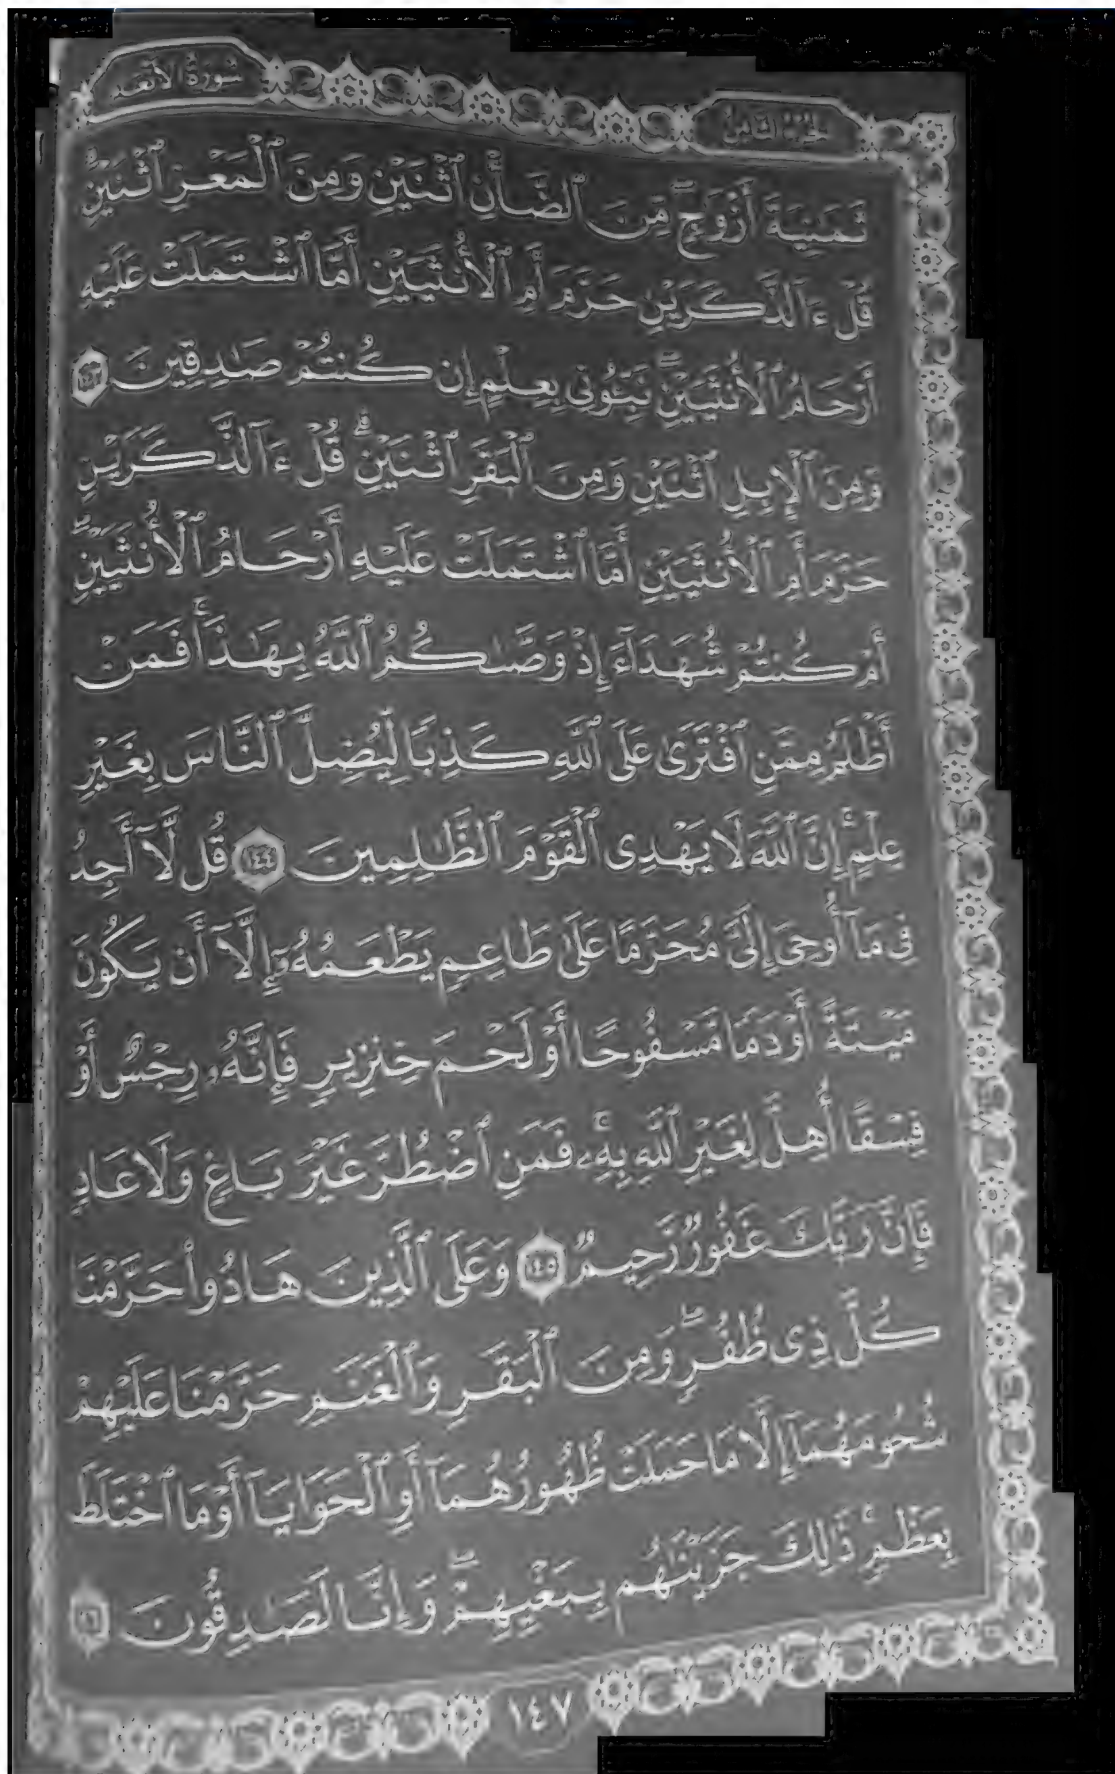 سُورَةُ الأَنْعَامِ
الجُزْءُ الثَّامِنُ
ثَمَٰنِيَةَ أَزْوَٰجٍۖ مِّنَ ٱلضَّأْنِ ٱثْنَيْنِ وَمِنَ ٱلْمَعْزِ ٱثْنَيْنِۗ
قُلْ ءَآلذَّكَرَيْنِ حَرَّمَ أَمِ ٱلْأُنثَيَيْنِ أَمَّا ٱشْتَمَلَتْ عَلَيْهِ
أَرْحَامُ ٱلْأُنثَيَيْنِۖ نَبِّـُٔونِى بِعِلْمٍ إِن كُنتُمْ صَٰدِقِينَ ١٤٣
وَمِنَ ٱلْإِبِلِ ٱثْنَيْنِ وَمِنَ ٱلْبَقَرِ ٱثْنَيْنِۗ قُلْ ءَآلذَّكَرَيْنِ
حَرَّمَ أَمِ ٱلْأُنثَيَيْنِ أَمَّا ٱشْتَمَلَتْ عَلَيْهِ أَرْحَامُ ٱلْأُنثَيَيْنِۖ
أَمْ كُنتُمْ شُهَدَآءَ إِذْ وَصَّىٰكُمُ ٱللَّهُ بِهَٰذَاۚ فَمَنْ
أَظْلَمُ مِمَّنِ ٱفْتَرَىٰ عَلَى ٱللَّهِ كَذِبًا لِّيُضِلَّ ٱلنَّاسَ بِغَيْرِ
عِلْمٍۗ إِنَّ ٱللَّهَ لَا يَهْدِى ٱلْقَوْمَ ٱلظَّٰلِمِينَ ١٤٤ قُل لَّآ أَجِدُ
فِى مَآ أُوحِىَ إِلَىَّ مُحَرَّمًا عَلَىٰ طَاعِمٍ يَطْعَمُهُۥٓ إِلَّآ أَن يَكُونَ
مَيْتَةً أَوْ دَمًا مَّسْفُوحًا أَوْ لَحْمَ خِنزِيرٍ فَإِنَّهُۥ رِجْسٌ أَوْ
فِسْقًا أُهِلَّ لِغَيْرِ ٱللَّهِ بِهِۦۚ فَمَنِ ٱضْطُرَّ غَيْرَ بَاغٍ وَلَا عَادٍ
فَإِنَّ رَبَّكَ غَفُورٌ رَّحِيمٌ ١٤٥ وَعَلَى ٱلَّذِينَ هَادُوا۟ حَرَّمْنَا
كُلَّ ذِى ظُفُرٍۖ وَمِنَ ٱلْبَقَرِ وَٱلْغَنَمِ حَرَّمْنَا عَلَيْهِمْ
شُحُومَهُمَآ إِلَّا مَا حَمَلَتْ ظُهُورُهُمَآ أَوِ ٱلْحَوَايَآ أَوْ مَا ٱخْتَلَطَ
بِعَظْمٍۚ ذَٰلِكَ جَزَيْنَٰهُم بِبَغْيِهِمْۖ وَإِنَّا لَصَٰدِقُونَ ١٤٦
١٤٧